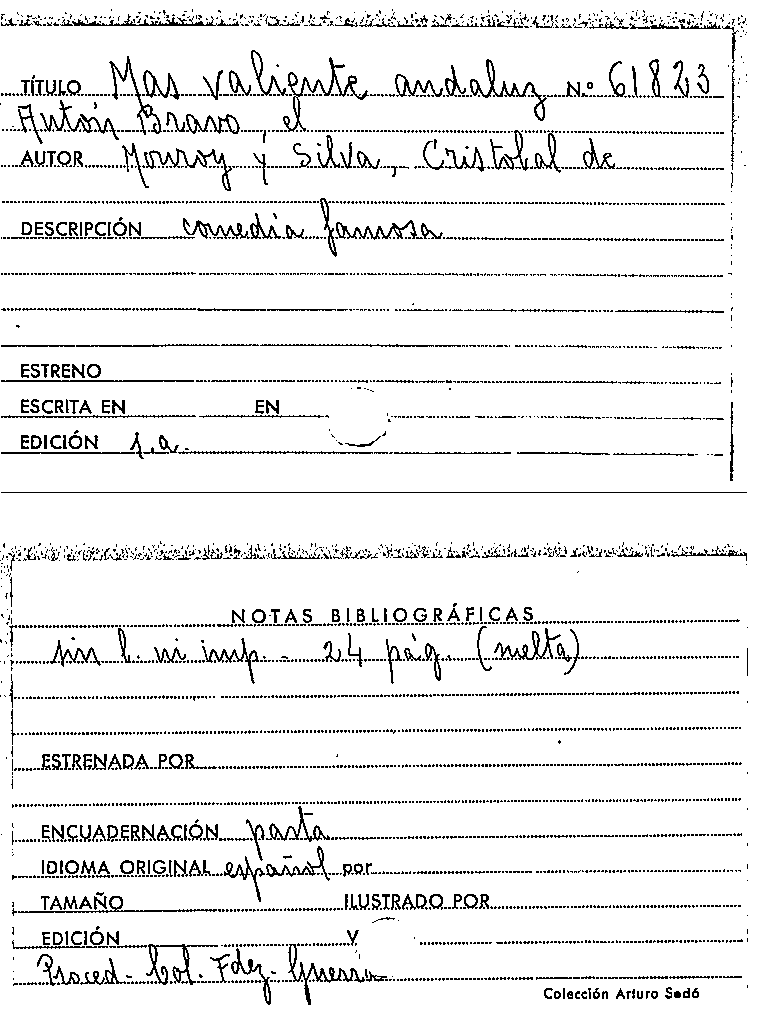 TÍTULO Mas valiente andaluz Nº 61823
Antón Bravo, el
AUTOR Monroy y Silva, Cristobal de
DESCRIPCIÓN comedia famosa
ESTRENO
ESCRITA EN EN
EDICIÓN s.a.
NOTAS BIBLIOGRÁFICAS
sin l. ni imp. - 24 pág. (suelta)
ESTRENADA POR
ENCUADERNACIÓN pasta
IDIOMA ORIGINAL español por
TAMAÑO ILUSTRADO POR
EDICIÓN Y
Proced. Col. Fdez-Guerra
Colección Arturo Sedó